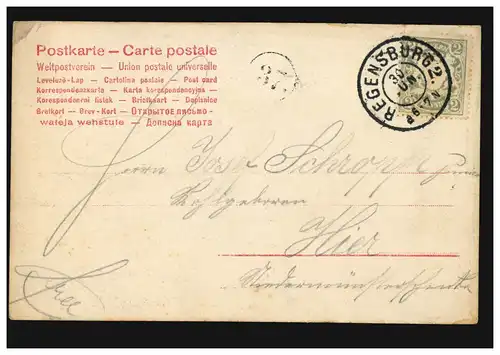 Postkarte – Carte postale
Weltpostverein – Union postale universelle
Levelező-Lap – Cartolina postale – Post card
Korrespondenzkarte – Karta korespondencyjna –
Korespondenční lístek – Briefkaart – Dopisnice
Brefkort – Brev-Kort – Открытое письмо –
Дописна карта
REGENSBURG 2.
30
JUN.
2
2
Herrn Josef Schropp
Wohlgeboren
Hier
Frei